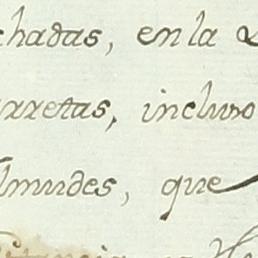 chadas, en la
arretas, incluso
lmudes, que